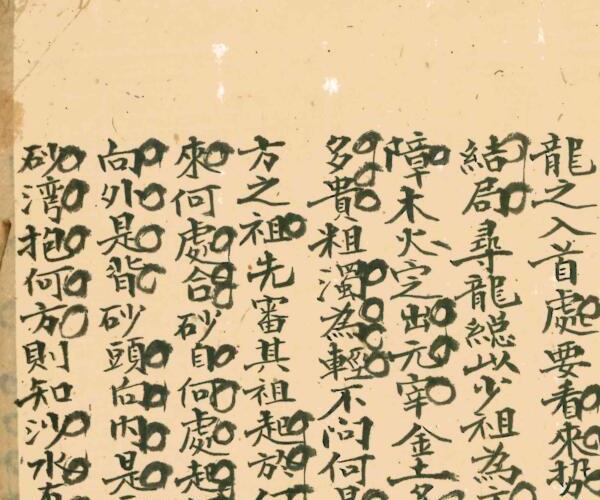 龍之入首處要看來扱
結局尋龍總以少祖為
障木火定出元宰金土
多貴粗濁為輕不问何
方之祖先審其祖起於
來何處合砂自何處起
向外是背砂頭向内是
砂湾抱何方則知沙水